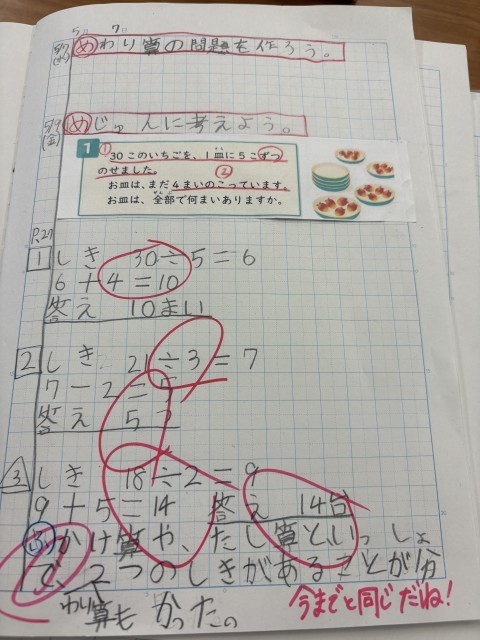 5/7
(水)
めわり算の問題を作ろう。
5/9
(金)
めじゅんに考えよう。
1
① 30このいちごを、1皿に5こずつ
のせました。 ②
お皿は、まだ4まいのこっています。
お皿は、全部で何まいありますか。
P.27
1 しき 30÷5=6
6+4=10
答え 10まい
2 しき 21÷3=7
7-2=5
答え 5
3 しき 18÷2=9
9+5=14 答え 14台
ふかけ算や、たし算と、いっしょ
で、2つのしきがあることが分
かった。
わり算も
今までと同じだね!